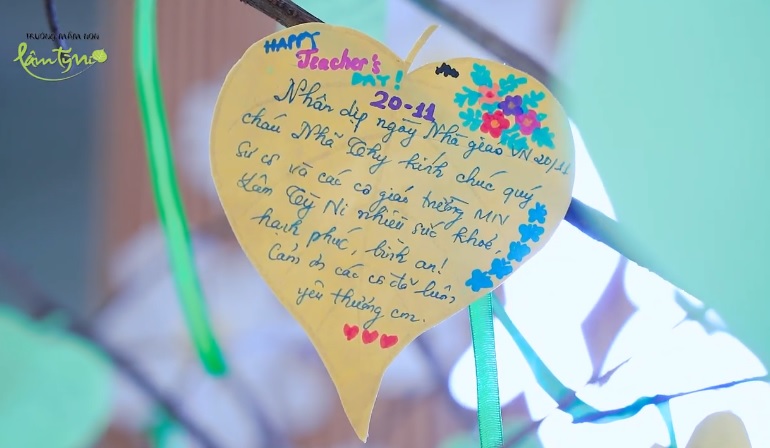 TRƯỜNG MẦM NON
Lâm Tỳ Ni
HAPPY
Teacher's
DAY!
20-11
Nhân dịp ngày Nhà giáo VN 20/11
cháu Nhã Thy kính chúc quý
sư cô và các cô giáo trường MN
Lâm Tỳ Ni nhiều sức khoẻ,
hạnh phúc, bình an!
Cảm ơn các cô đã luôn
yêu thương con.